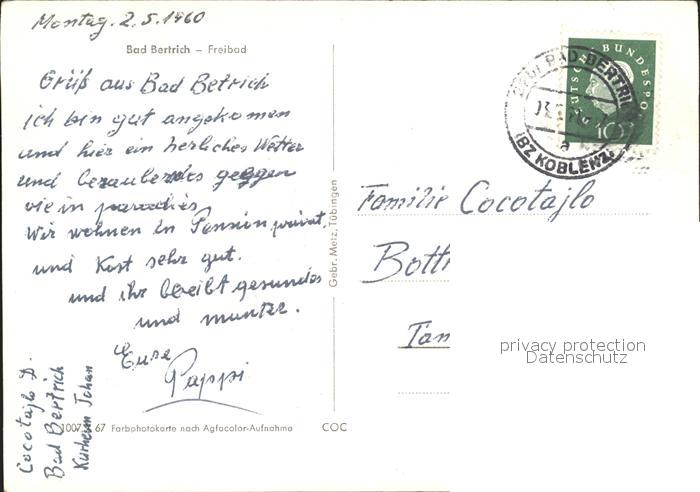 Montag. 2.5.1960
Bad Bertrich – Freibad
Grüß aus Bad Betrich
ich bin gut angekomen
und hier ein herliches Wetter
und bezauberdes geggen
wie in paradies,
Wir wohnen in Pensin privat.
und Kost sehr gut.
und ihr bleibt gesundes
und munter.
Eure
Pappi
Cocotajlo D.
Bad Bertrich
Kurheim Johan
67 Farbphotokarte nach Agfacolor-Aufnahme
COC
Gebr. Metz, Tübingen
DEUTSCHE BUNDESPO
10
BAD BERTRICH
a
(BZ KOBLENZ)
Familie Cocotajlo
Bott
Tan
privacy protection
Datenschutz